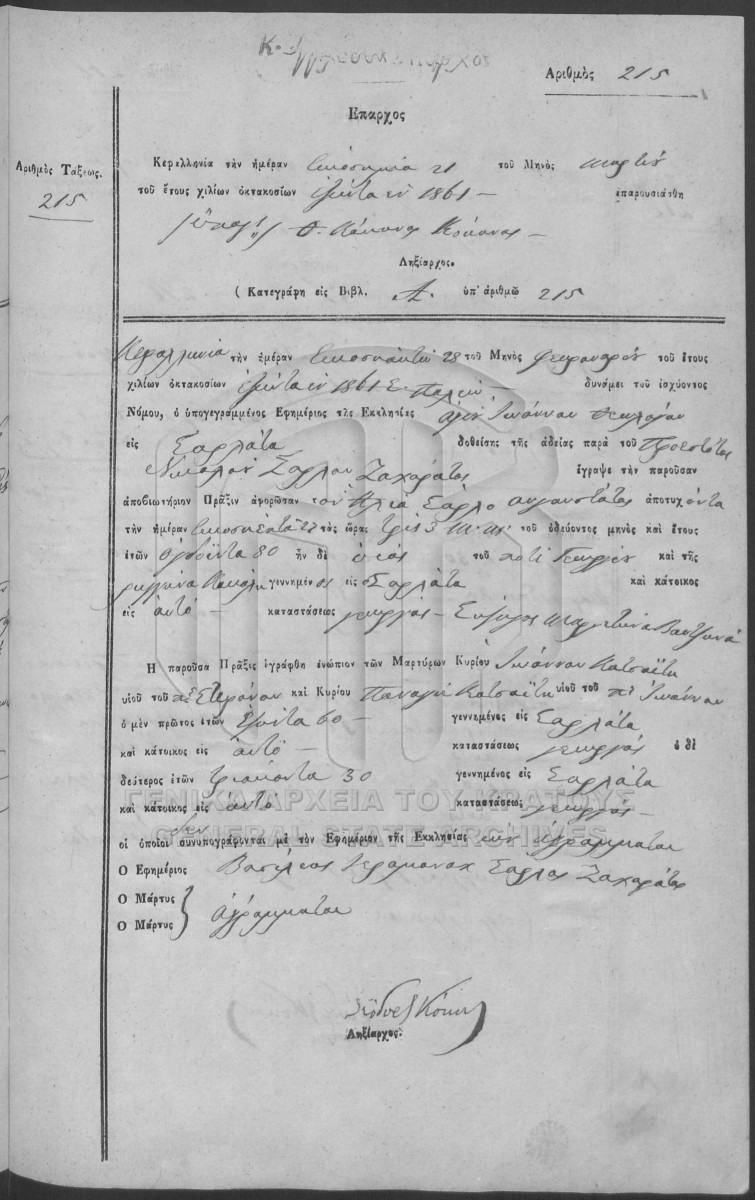 Αριθμὸς 215
Επαρχος
Αριθμὸς Τάξεως.
215
Κεφαλληνία τὴν ἡμέραν εικοσημία 21 τοῦ Μηνὸς Μαρτίου
τοῦ ἔτους χιλίων ὀκτακοσίων ἑξήντα ἑν 1861 — ἐπαρουσιάσθη
Ληξίαρχος.
(Κατεγράφη εἰς Βιβλ. Α. ὑπ' ἀριθμῷ 215
Κεφαλληνία τὴν ἡμέραν Εικοσηοκτώ 28 τοῦ Μηνὸς Φευρουαρίου τοῦ ἔτους
χιλίων ὀκτακοσίων ἑξήντα ἑν 1861 δυνάμει τοῦ ἰσχύοντος
Νόμου, ὁ ὑπογεγραμμένος Ἐφημέριος τῆς Εκκλησίας ἁγίου Ἰωάννου Θεολόγου
εἰς Σαρλάτα δοθείσης τῆς ἀδείας παρὰ τοῦ Προεστῶτος
Νικολάου Σάρλου Ζαχαράτος ἔγραψε τὴν παροῦσαν
ἀποβιωτήριον Πρᾶξιν ἀφορῶσαν τον Ηλία Σάρλο Αυγουστάτος ἀποτυχόντα
τὴν ἡμέραν Εικοσηεπτά 27 τὰς ὥρας τρῖς 3 Μ.Μ. τοῦ ὁδεύοντος μηνὸς καὶ ἔτους
ἐτῶν ὀγδοῆντα 80 ἦν δὲ ὁ υἱὸς τοῦ ποτὲ Γεωργίου καὶ τῆς
γεννημένος εἰς Σαρλάτα καὶ κάτοικος
εἰς αυτό — καταστάσεως γεωργός — Σύζυγος
Η παροῦσα Πρᾶξις ἐγράφθη ἐνώπιον τῶν Μαρτύρων Κυρίου Ἰωάννου Κατσαΐτη
υἱοῦ τοῦ καὶ Κυρίου Παναγῆ Κατσαΐτη υἱοῦ τοῦ πτ Ἰωάννου
ὁ μὲν πρῶτος ἐτῶν ἑξήντα 60 — γεννημένος εἰς Σαρλάτα
καὶ κάτοικος εἰς αυτό — καταστάσεως γεωργός ὁ δὲ
δεύτερος ἐτῶν τριάκοντα 30 γεννημένος εἰς Σαρλάτα
καὶ κάτοικος εἰς αυτό καταστάσεως γεωργός —
ΓΕΝΙΚΑ ΑΡΧΕΙΑ ΤΟΥ ΚΡΑΤΟΥΣ
GENERAL STATE ARCHIVES
οἱ ὁποῖοι δεν συνυπογράφονται μὲ τὸν Ἐφημέριον τῆς Εκκλησίας ἀγράμματοι
Ο Ἐφημέριος Βασίλειος Ιερομοναχ Σάρλος Ζαχαράτος
Ο Μάρτυς
Ο Μάρτυς ἀγράμματοι
Ληξίαρχος.